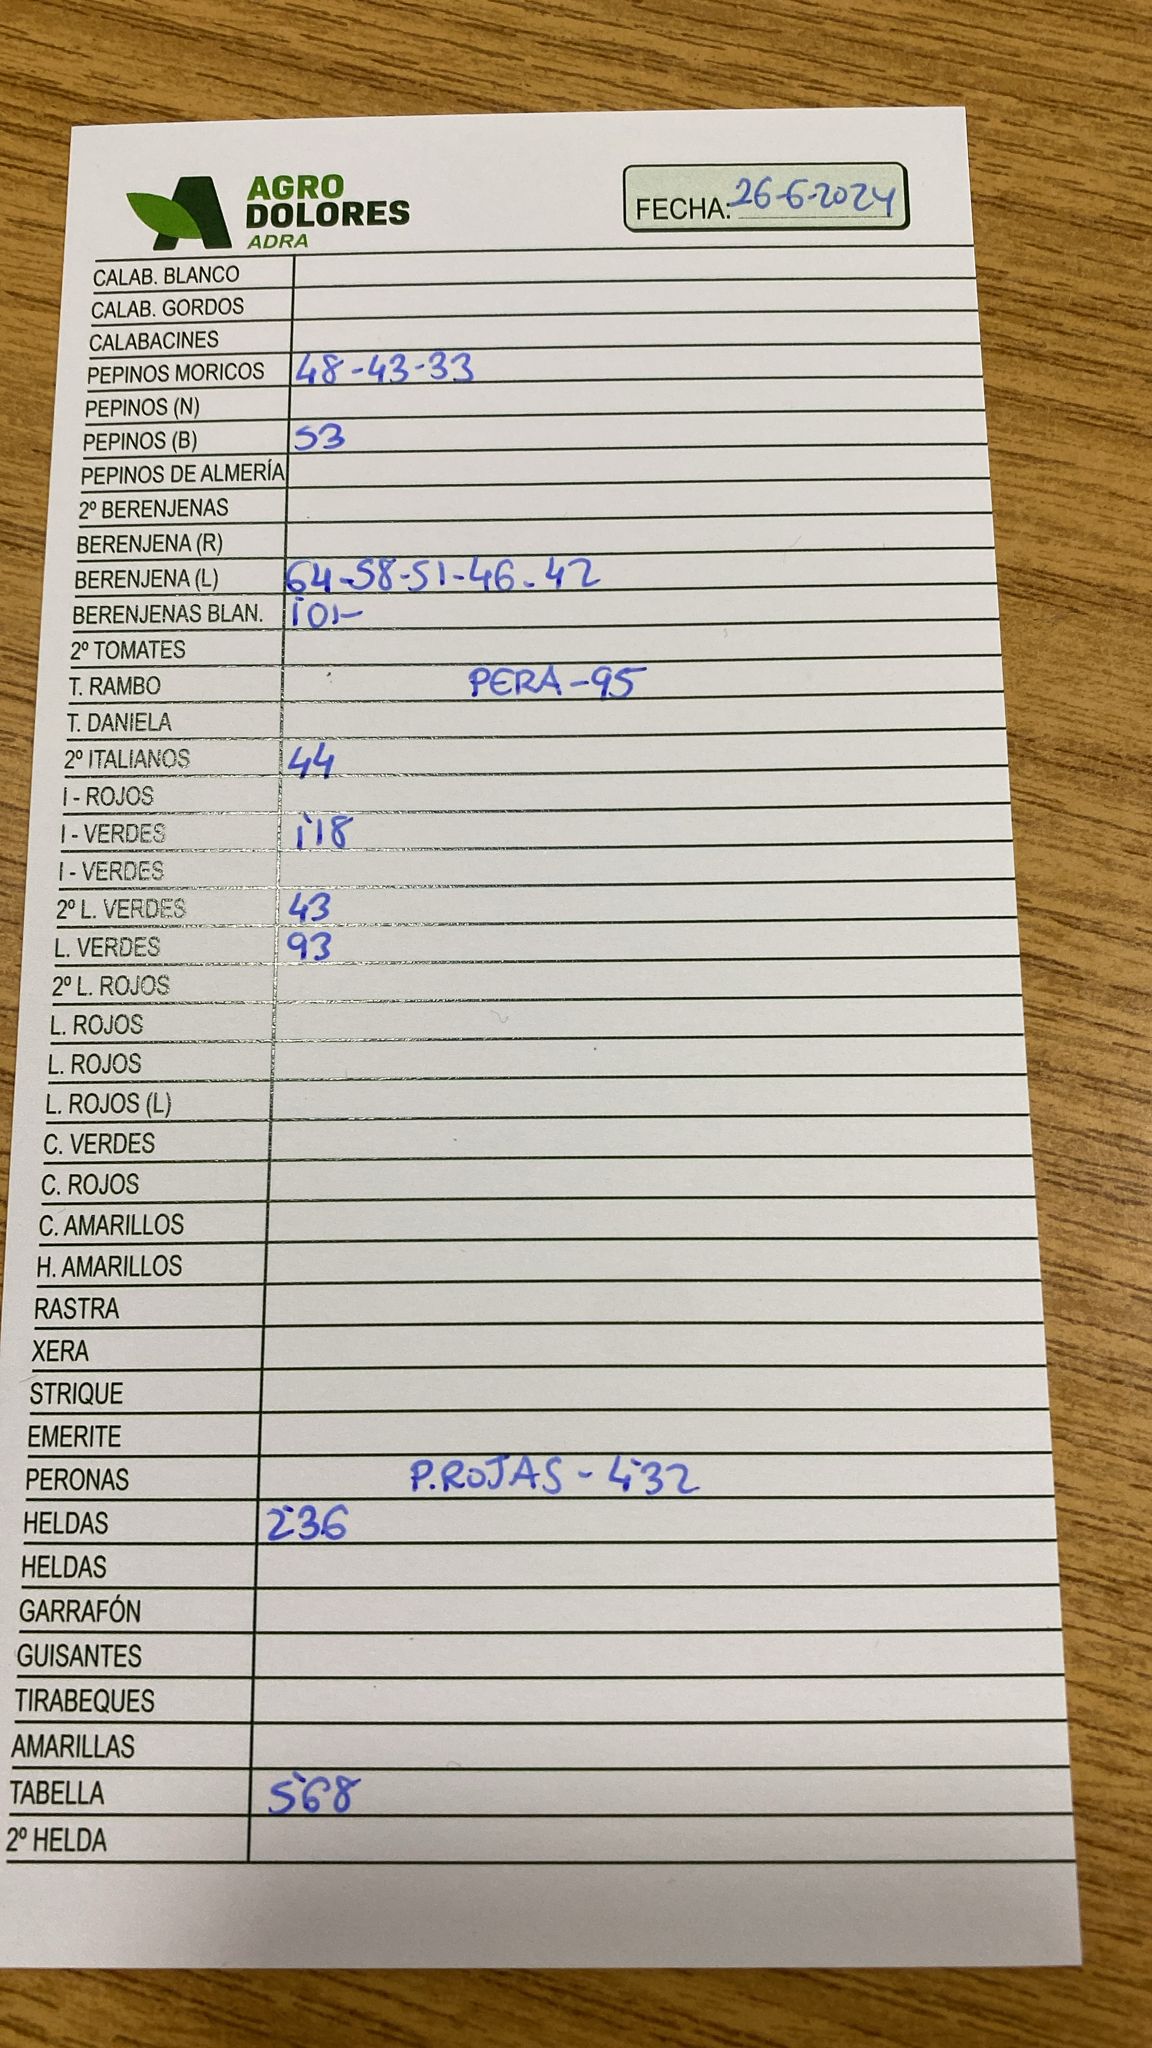 AGRO
DOLORES
ADRA
FECHA: 26-6-2024
CALAB. BLANCO
CALAB. GORDOS
CALABACINES
PEPINOS MORICOS 48-43-33
PEPINOS (N)
PEPINOS (B) 53
PEPINOS DE ALMERÍA
2º BERENJENAS
BERENJENA (R)
BERENJENA (L) 64-58-51-46-42
BERENJENAS BLAN. 1'01-
2º TOMATES
T. RAMBO PERA-95
T. DANIELA
2º ITALIANOS 44
I - ROJOS
I - VERDES 1'18
I - VERDES
2º L. VERDES 43
L. VERDES 93
2º L. ROJOS
L. ROJOS
L. ROJOS
L. ROJOS (L)
C. VERDES
C. ROJOS
C. AMARILLOS
H. AMARILLOS
RASTRA
XERA
STRIQUE
EMERITE
PERONAS P.ROJAS - 4'32
HELDAS 2'36
HELDAS
GARRAFÓN
GUISANTES
TIRABEQUES
AMARILLAS
TABELLA 5'68
2º HELDA